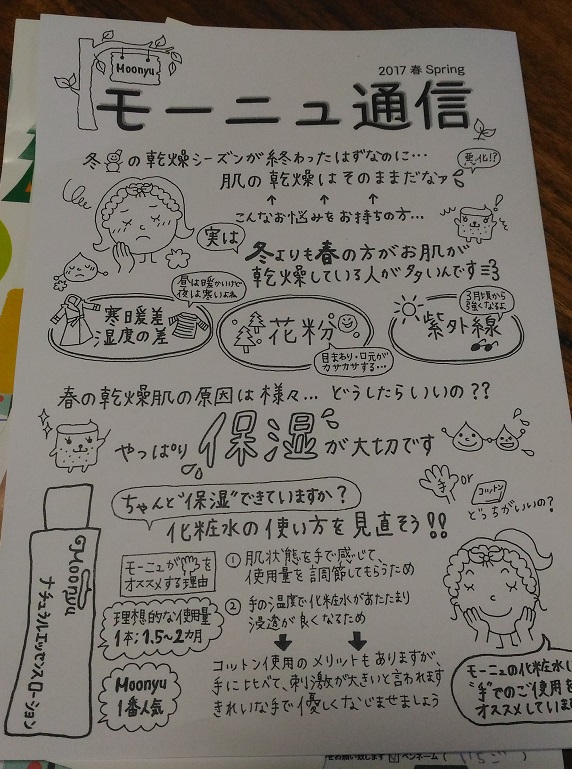 Moonyu
2017 春 Spring
モーニュ通信
冬の乾燥シーズンが終わったはずなのに…
悪化!?
肌の乾燥はそのままだなァ
↑ ↑ ↑
こんなお悩みをお持ちの方…
実は
冬よりも春の方がお肌が
乾燥している人が多いんです
昼は暖かいけど
夜は寒いよね
寒暖差
湿度の差
花粉
目まわり・口元が
カサカサする…
3月頃から
強くなるよ
紫外線
春の乾燥肌の原因は様々… どうしたらいいの??
やっぱり保湿が大切です
ちゃんと"保湿"できていますか?
化粧水の使い方を見直そう!!
手 or コットン
どっちがいいの?
モーニュが手を
オススメする理由
① 肌状態を手で感じて、
使用量を調節してもらうため
② 手の温度で化粧水があたたまり
浸透が良くなるため
理想的な使用量
1本:1.5~2カ月
Moonyu
1番人気
Moonyu
ナチュラルエッセンスローション
コットン使用のメリットもありますが、
手に比べて、刺激が大きいと言われます
きれいな手で優しくなじませましょう
モーニュの化粧水は
"手"でのご使用を
オススメしています
ペンネーム